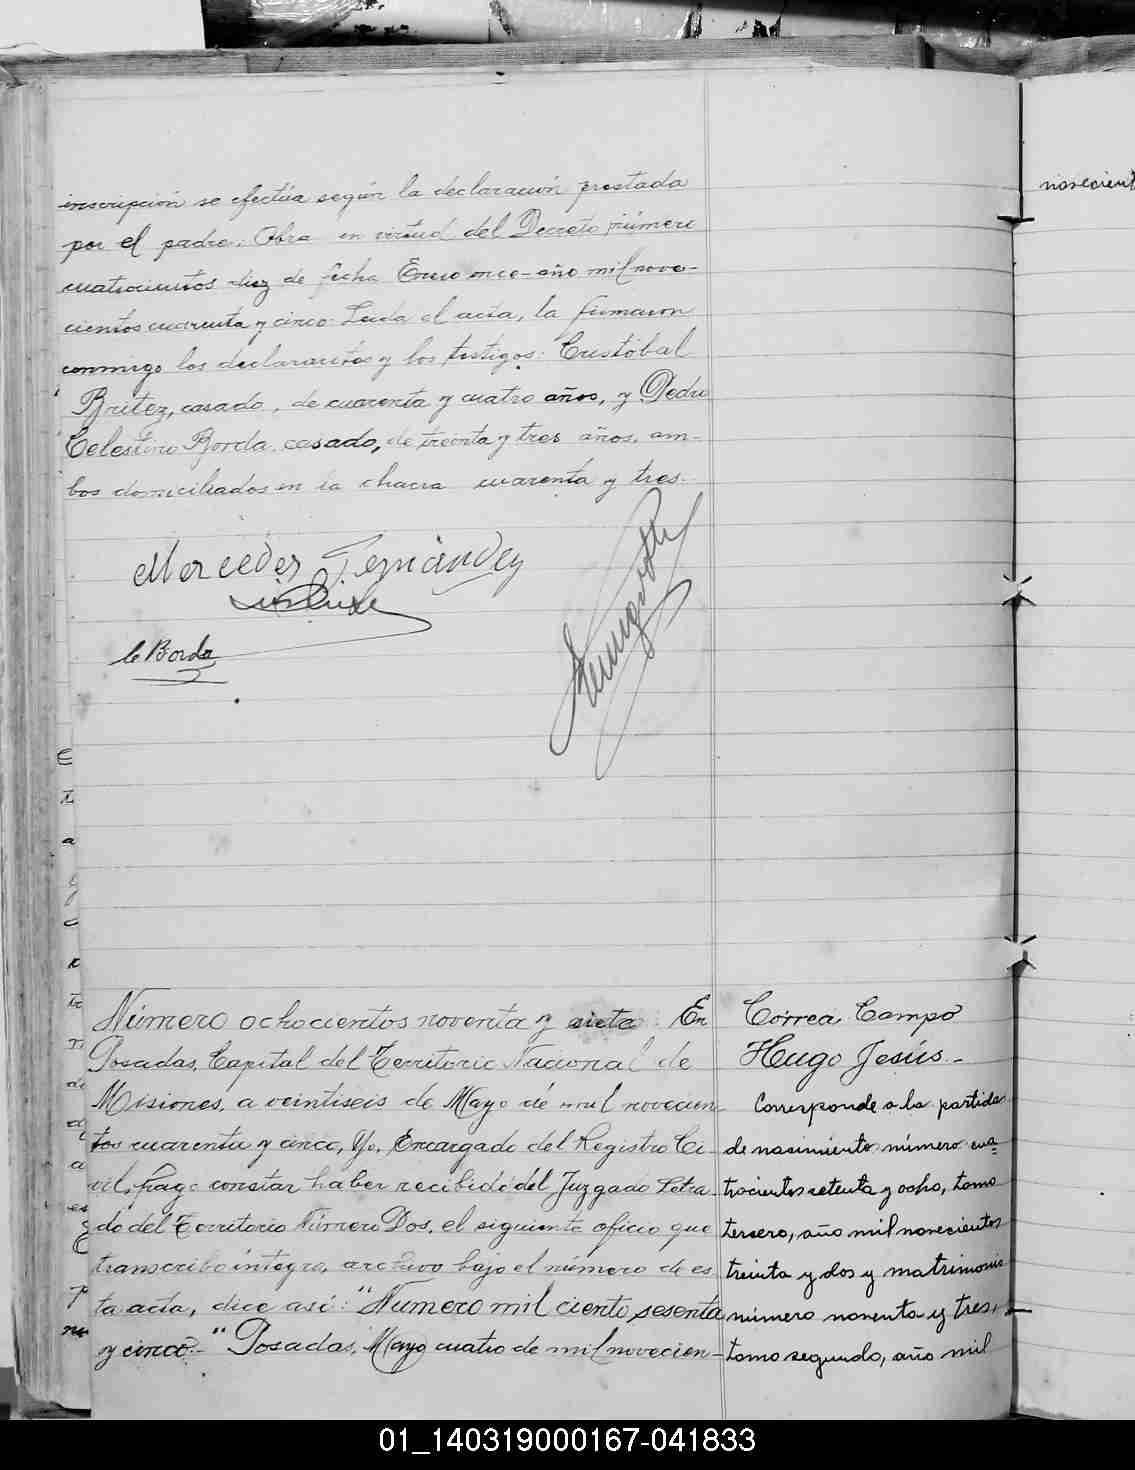 inscripción se efectúa según la declaración prestada
por el padre. Obra en virtud del Decreto número
cuatrocientos diez de fecha Enero once - año mil nove-
cientos cuarenta y cinco. Leida el acta, la firmaron
conmigo los declarantes y los testigos: Cristóbal
Britez, casado, de cuarenta y cuatro años, y Pedro
Celestino Borda, casado, de treinta y tres años, am-
bos domiciliados en la chacra cuarenta y tres.
Mercedes Fernández
C Borda
Número ochocientos noventa y siete. En
Posadas, Capital del Territorio Nacional de
Misiones, a veintiseis de Mayo de mil novecien
tos cuarenta y cinco, Yo, Encargado del Registro Ci-
vil, hago constar haber recibido del Juzgado Letra-
do del Territorio Número Dos, el siguiente oficio que
transcribo integro, archivo bajo el número de es
ta acta, dice asi: "Número mil ciento sesenta
y cinco.- "Posadas, Mayo cuatro de mil novecien-
Correa, Campo
Hugo Jesús.-
Corresponde a la partida
de nacimiento número cua=
trocientos setenta y ocho, tomo
tercero, año mil novecientos
treinta y dos y matrimonio
número noventa y tres,
tomo segundo, año mil
novecient
01_140319000167-041833